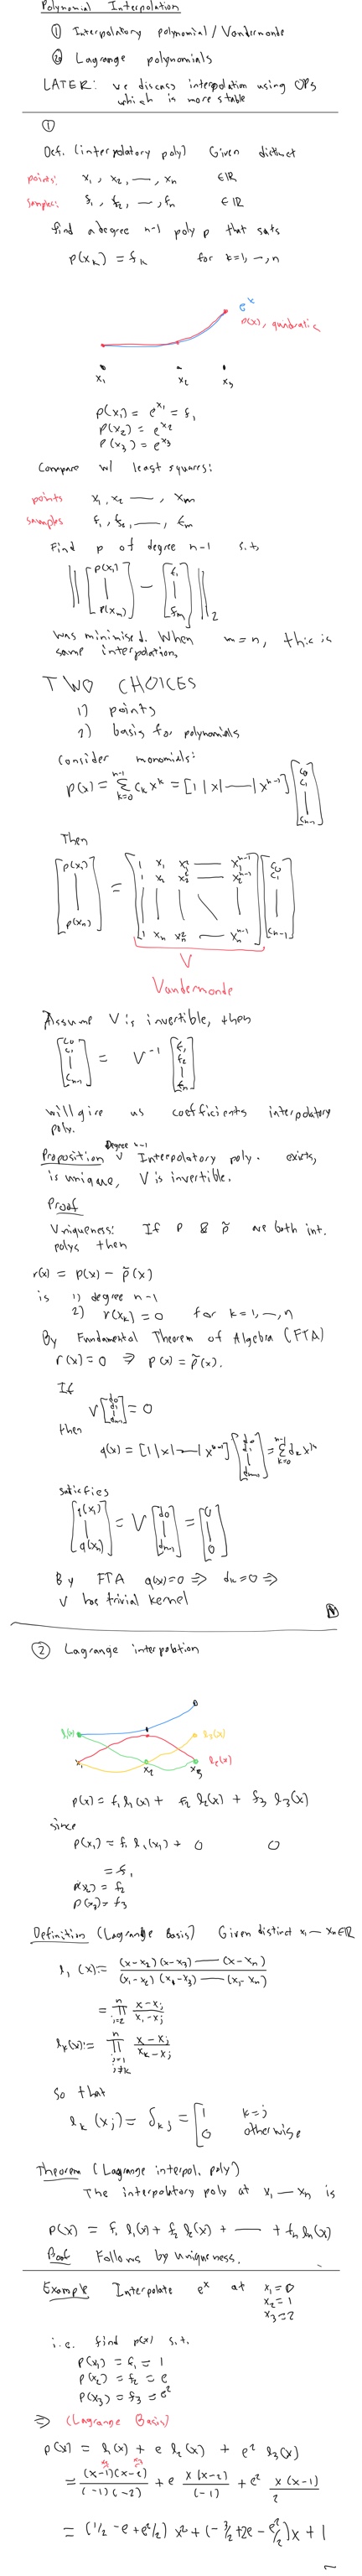 Polynomial Interpolation
① Interpolatory polynomial / Vandermonde
② Lagrange polynomials
LATER: we discuss interpolation using OPs
which is more stable
①
Def. (interpolatory poly) Given distinct
points: x₁, x₂, —, xₙ ∈ℝ
samples: f₁, f₂, —, fₙ ∈ℝ
find a degree n-1 poly p that sats
p(xₖ) = fₖ for k=1, –, n
eˣ
p(x), quadratic
x₁ x₂ x₃
p(x₁) = e^x₁ = f₁
p(x₂) = e^x₂
p(x₃) = e^x₃
Compare w/ least squares:
points x₁, x₂ —, xₘ
samples f₁, f₂, —, fₘ
Find p of degree n-1 s.t.
‖ [p(x₁) | p(xₘ)] − [f₁ | fₘ] ‖₂
was minimised. When m=n, this is
same interpolation.
TWO CHOICES
1) points
2) basis for polynomials
Consider monomials:
p(x) = Σ_{k=0}^{n-1} cₖ xᵏ = [1 | x | — | xⁿ⁻¹] [c₀ c₁ | cₙ₋₁]
Then
[p(x₁) | p(xₙ)] = [1 x₁ x₁² — x₁ⁿ⁻¹ 1 x₂ x₂² — x₂ⁿ⁻¹ | | | \ | 1 xₙ xₙ² — xₙⁿ⁻¹] [c₀ c₁ | cₙ₋₁]
V
Vandermonde
Assume V is invertible, then
[c₀ c₁ | cₙ₋₁] = V⁻¹ [f₁ f₂ | fₙ]
will give us coefficients interpolatory
poly.
Degree n-1
Proposition ∨ Interpolatory poly. exists,
is unique, V is invertible.
Proof
Uniqueness: If p & p̃ are both int.
polys then
r(x) = p(x) − p̃(x)
is 1) degree n-1
2) r(xₖ) = 0 for k=1, –, n
By Fundamental Theorem of Algebra (FTA)
r(x) = 0 ⇒ p(x) = p̃(x).
If
V [d₀ d₁ | dₙ₋₁] = 0
then
q(x) = [1 | x | — | xⁿ⁻¹] [d₀ d₁ | dₙ₋₁] = Σ_{k=0}^{n-1} dₖ xᵏ
satisfies
[q(x₁) | q(xₙ)] = V [d₀ | dₙ₋₁] = [0 | 0]
By FTA q(x)=0 ⇒ dₖ=0 ⇒
V has trivial kernel
② Lagrange interpolation
l₁(x) l₃(x)
x₁ x₂ x₃ l₂(x)
p(x) = f₁ l₁(x) + f₂ l₂(x) + f₃ l₃(x)
since
p(x₁) = f₁ l₁(x₁) + 0 0
= f₁
p(x₂) = f₂
p(x₃) = f₃
Definition (Lagrange Basis) Given distinct x₁ — xₙ ∈ℝ
l₁(x) := (x-x₂)(x-x₃) — (x-xₙ) / (x₁-x₂)(x₁-x₃) — (x₁-xₙ)
= ∏_{j=2}^{n} (x-xⱼ)/(x₁-xⱼ)
lₖ(x) := ∏_{j=1, j≠k}^{n} (x-xⱼ)/(xₖ-xⱼ)
So that
lₖ(xⱼ) = δₖⱼ = [1 k=j
0 otherwise
Theorem (Lagrange interpol. poly)
The interpolatory poly at x₁ — xₙ is
p(x) = f₁ l₁(x) + f₂ l₂(x) + — + fₙ lₙ(x)
Proof Follows by uniqueness.
Example Interpolate eˣ at x₁ = 0
x₂ = 1
x₃ = 2
i.e. find p(x) s.t.
p(x₁) = f₁ = 1
p(x₂) = f₂ = e
p(x₃) = f₃ = e²
⇒ (Lagrange Basis)
p(x) = l₁(x) + e l₂(x) + e² l₃(x)
x₂ x₃
= (x-1)(x-2) / (-1)(-2) + e x(x-2) / (-1) + e² x(x-1) / 2
= (1/2 - e + e²/2) x² + (-3/2 + 2e - e²/2) x + 1